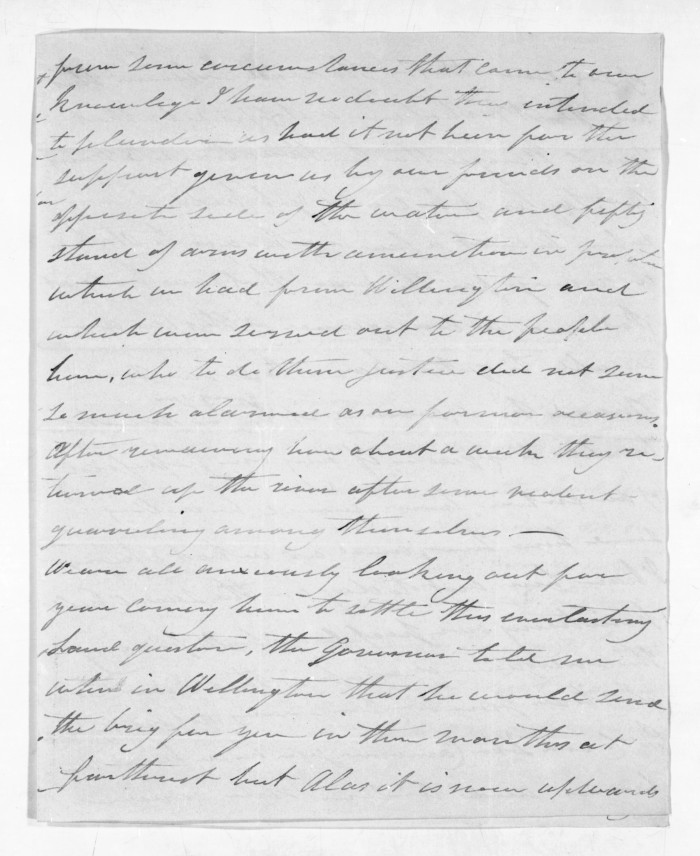 from some circumstances that came to our
knowledge I have no doubt they intended
to plunder us had it not been for the
support given us by our friends on the
opposite side of the water and fifty
stand of arms with ammunition in
which we had from Wellington and
which were served out to the people
here, who to do them justice did not seem
so much alarmed as on former occasions.
After remaining here about a week they re-
turned up the river after some violent
quarreling among themselves —
We are all anxiously looking out for
your coming here to settle this everlasting
Land question, the Governor told me
when in Wellington that he would send
the brig for you in three months at
farthest but Alas it is now upwards